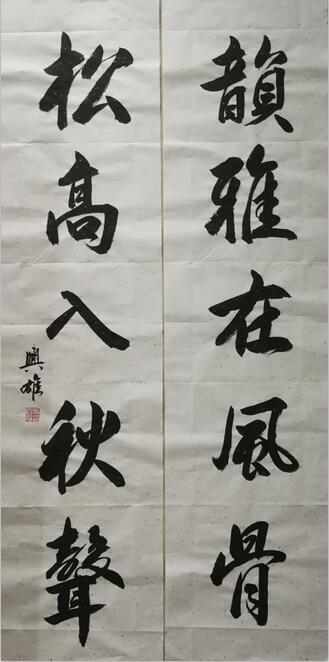 韻雅在風骨
松高入秋聲
興雄